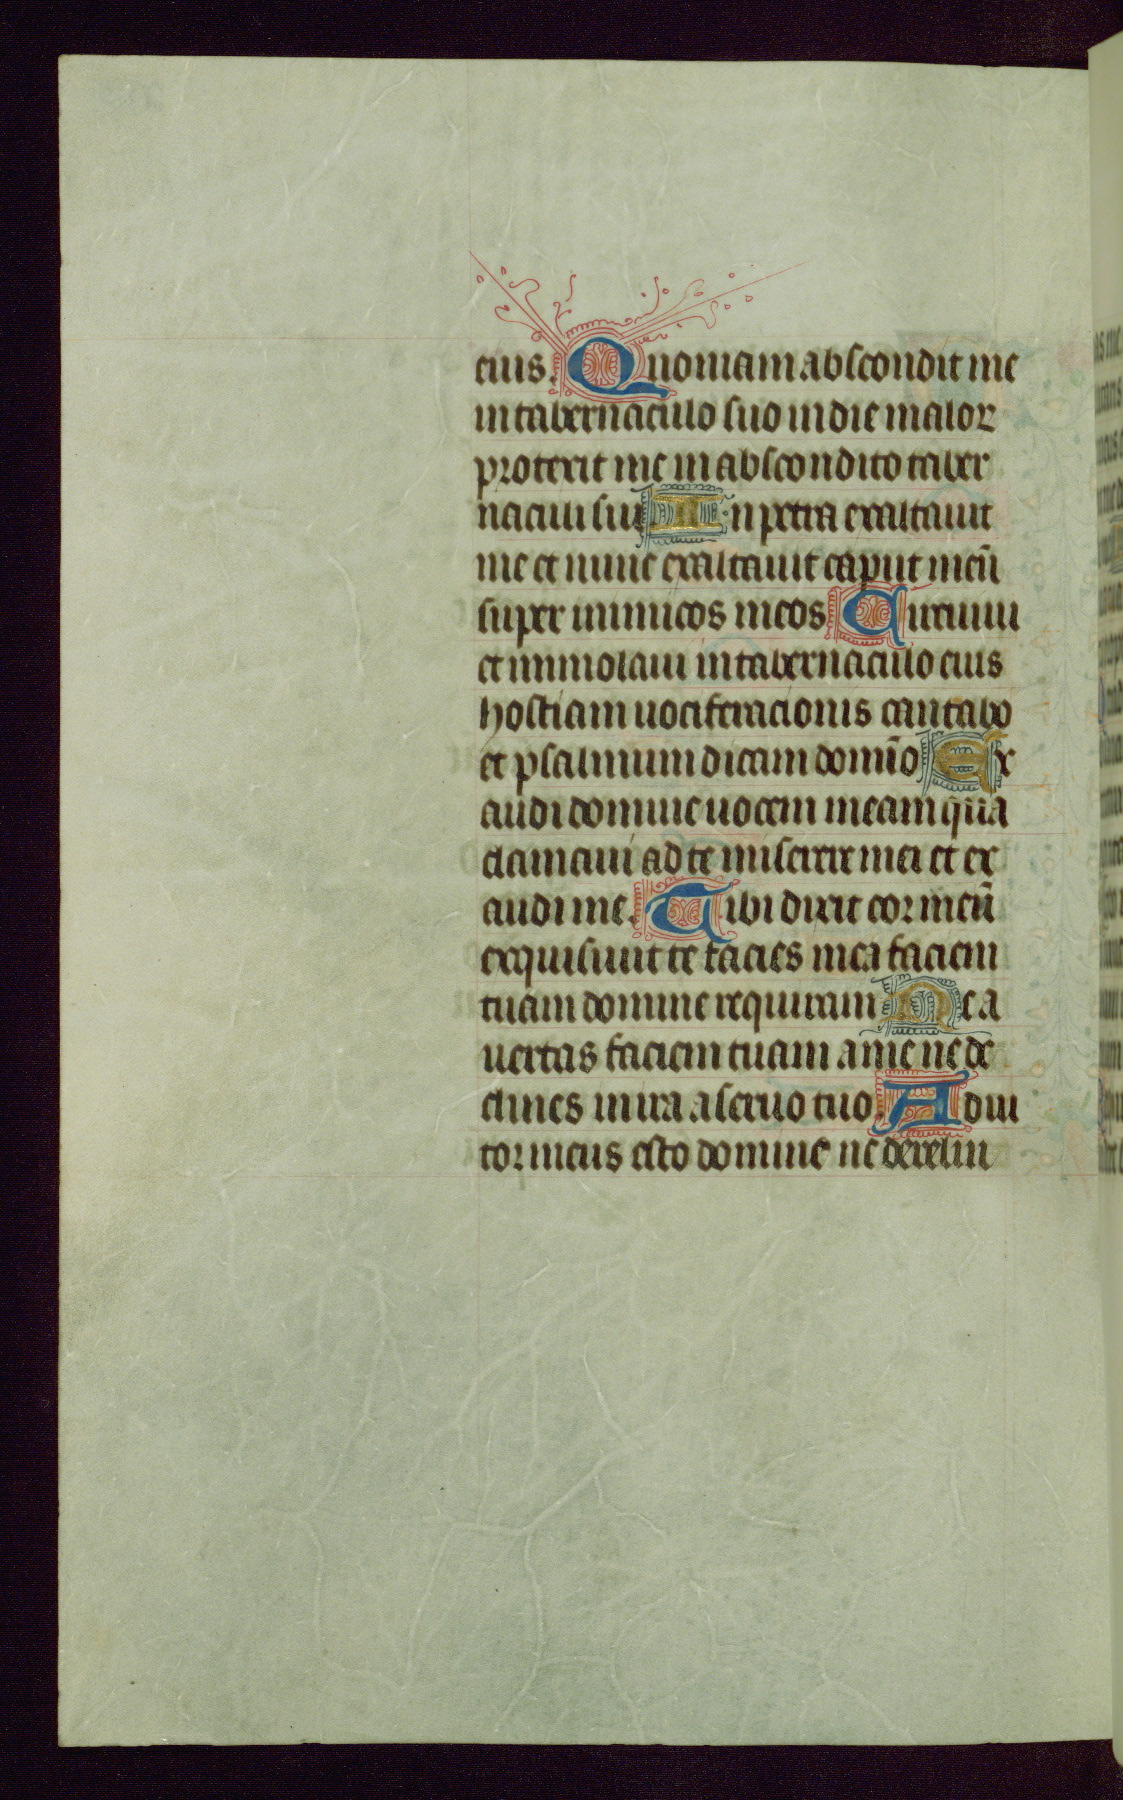 eius. Quoniam abscondit me
in tabernaculo suo in die malor
protexit me in abscondito taber
naculi sui In petra exaltauit
me et nunc exaltauit caput meū
super inimicos meos Circuiui
et immolaui in tabernaculo eius
hostiam uociferacionis cantabo
et psalmum dicam domīo Ex
audi domine uocem meam qua
clamaui ad te miserere mei et ex
audi me. Tibi dixit cor meū
exquisiuit te facies mea faciem
tuam domine requiram Ne a
uertas faciem tuam a me ne de
clines in ira a seruo tuo. Adiu
tor meus esto domine ne derelin